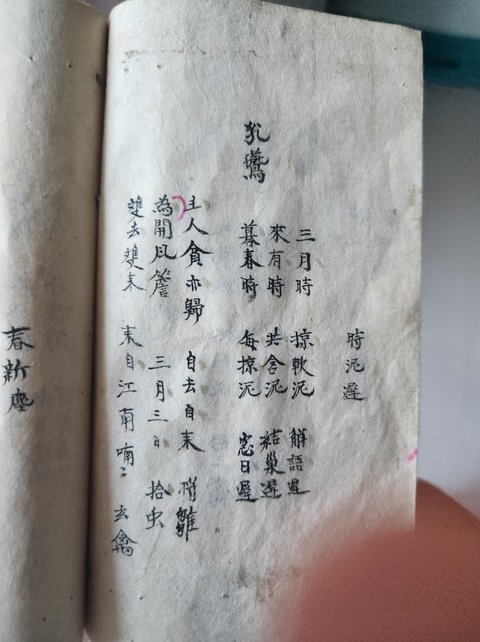 時泥遲
三月時 掠軟泥 解語遲
來有時 共含泥 結巢遲
暮春時 每掠泥 窓日遲
乳鷰
主人貪亦歸 自去自来 将雛
為開風簷 三月三日 拾虫
雙去雙来 来自江南 喃〻 玄禽
春新塵